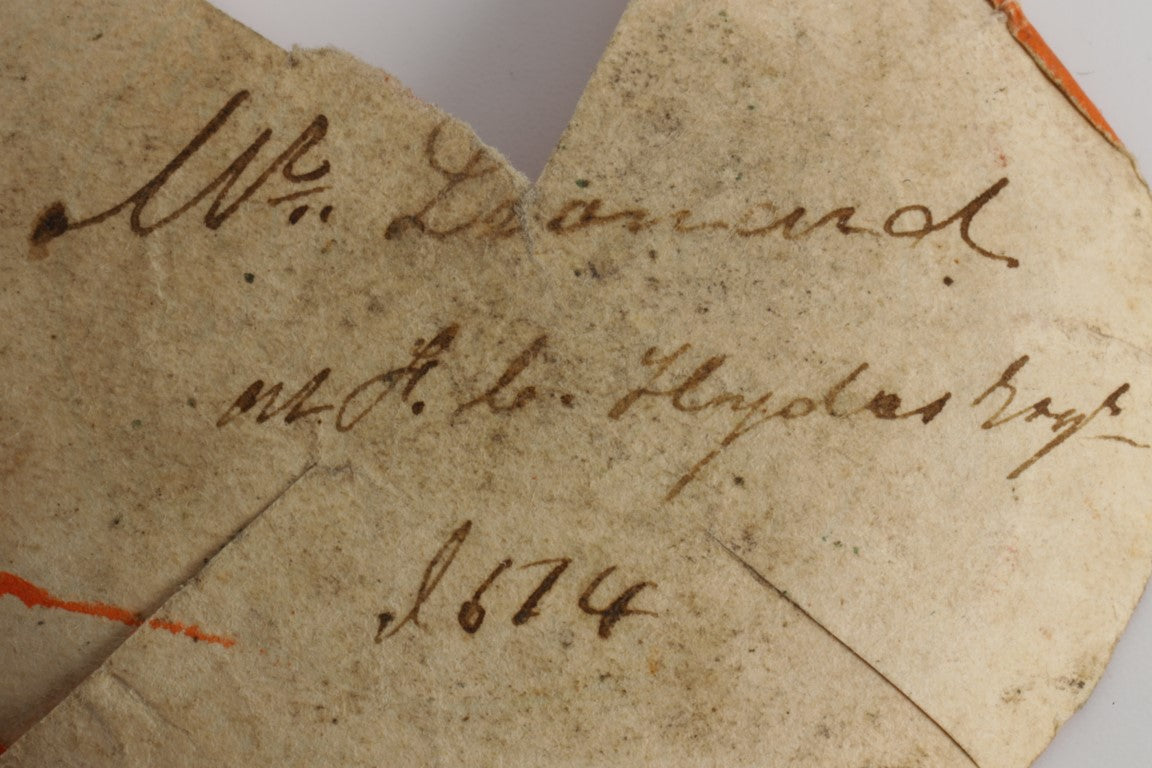 Mr. Leonard
at F. C. Hydes Esqr
1674